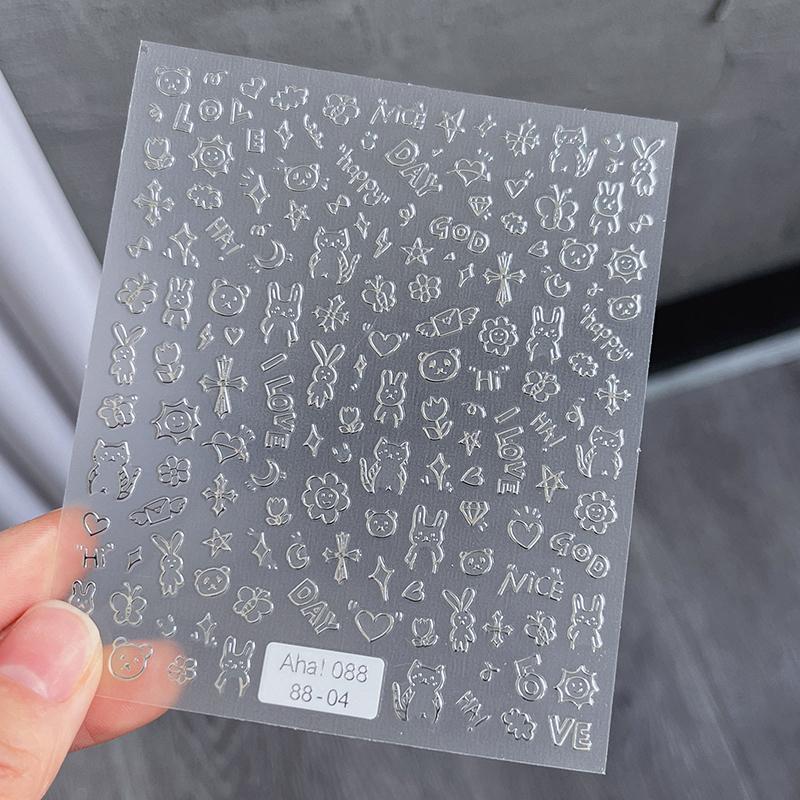 LOVE
NICE
DAY
"happy"
GOD
HA!
"happy"
"Hi"
I LOVE
I LOVE
HA!
"Hi"
GOD
NICE
DAY
Aha! 088
88-04
HA!
VE